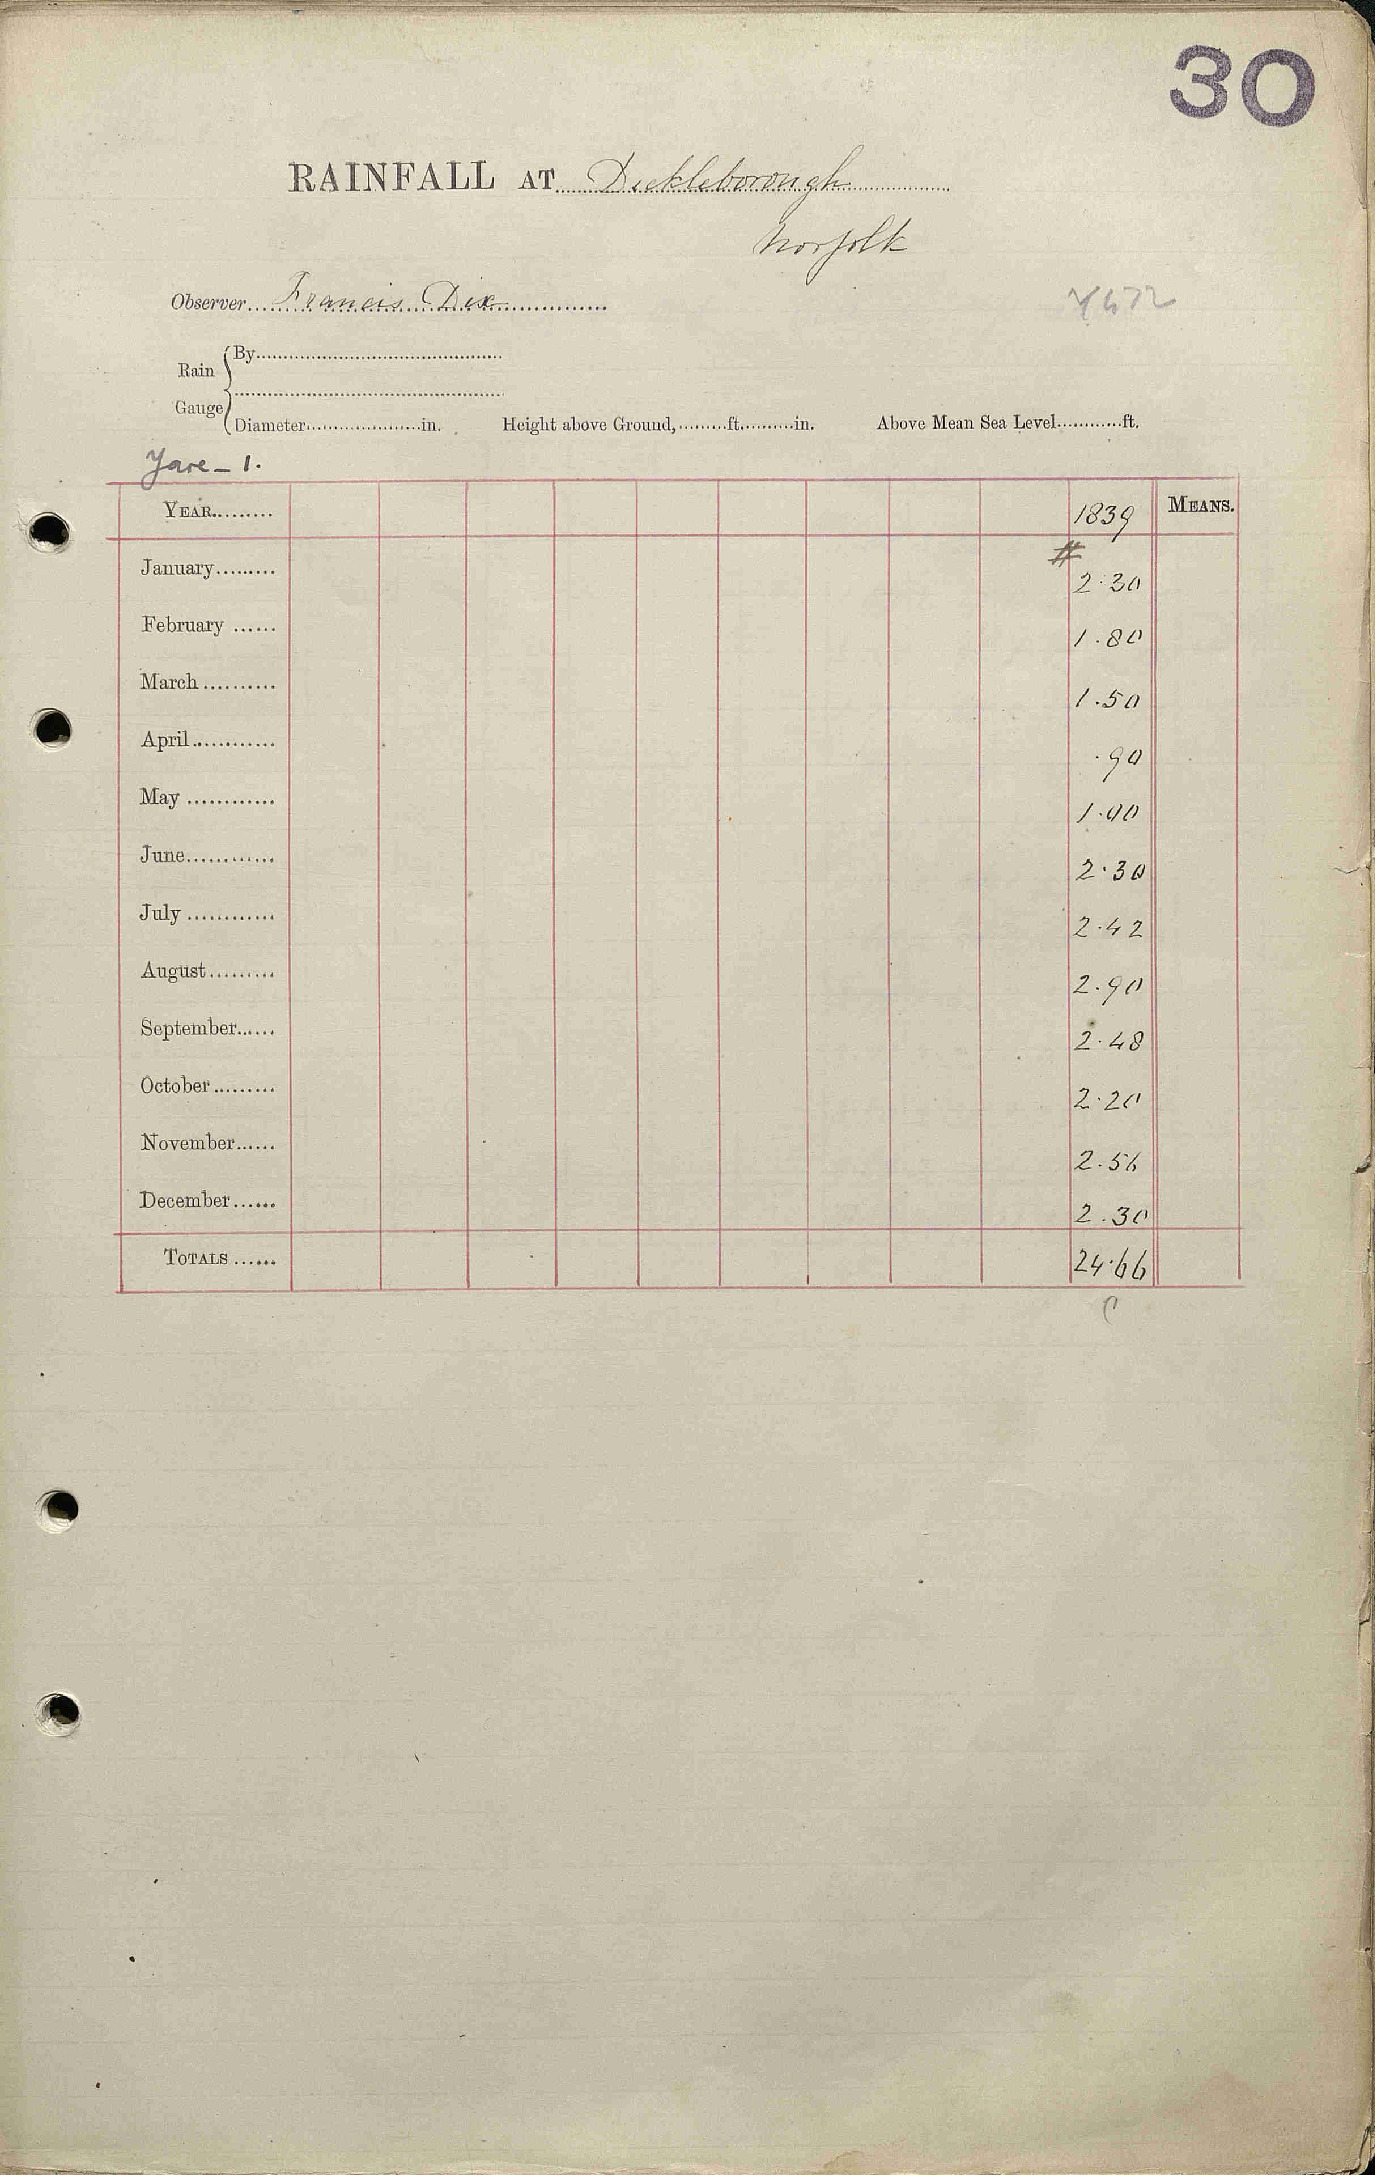 30
RAINFALL AT Dickleborough
Norfolk
Observer Francis Dix
Rain Gauge
By
Diameter in. Height above Ground, ft. in. Above Mean Sea Level ft.
Yare - 1.
YEAR 1839 MEANS.
#
January 2.30
February 1.80
March 1.50
April .90
May 1.00
June 2.30
July 2.42
August 2.90
September 2.48
October 2.20
November 2.56
December 2.30
TOTALS 24.66
C